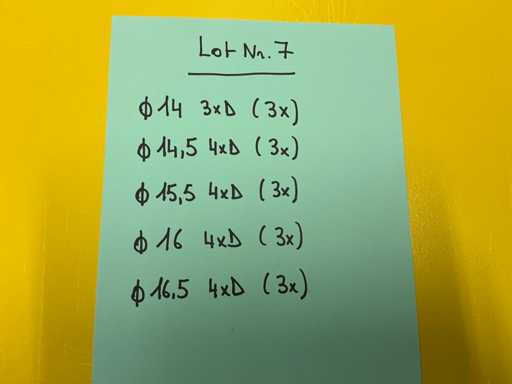 Lot Nr. 7
ϕ 14 3xD (3x)
ϕ 14,5 4xD (3x)
ϕ 15,5 4xD (3x)
ϕ 16 4xD (3x)
ϕ 16,5 4xD (3x)